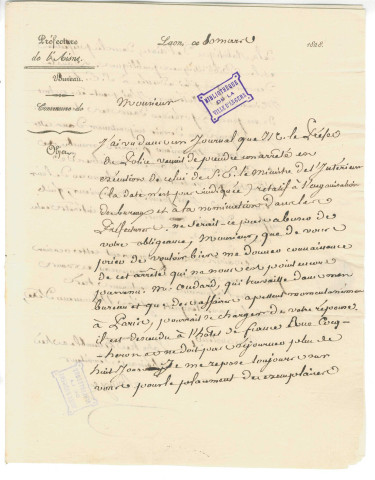 Préfecture
de l'Aisne
Bureau
Commune de
Objet
Laon, ce 6 mars 1828.
BIBLIOTHEQUE
DE LA
VILLE D'
Monsieur
J'ai vu dans un Journal que Mr. le Préfet
de Police venait de prendre un arrêté en
exécution de celui de S. E. le Ministre de l'Intérieur
(la date n'est pas indiquée) relatif à l'organisation
des et à la nomination dans les
Préfectures, ne serait-ce pas abuser de
votre obligeance, Monsieur, que de vous
prier de vouloir bien me donner connaissance
de cet arrêté qui ne nous est point encore
parvenu. Mr. Oudard, qui travaille dans mon
bureau et que des affaires appellent momentanément
à Paris, pourrait se charger de votre réponse
il est descendu à l'hôtel de France Rue Coq-
héron et ne doit pas séjourner plus de
huit Jours. Je me repose toujours sur
vous pour le placement des exemplaires